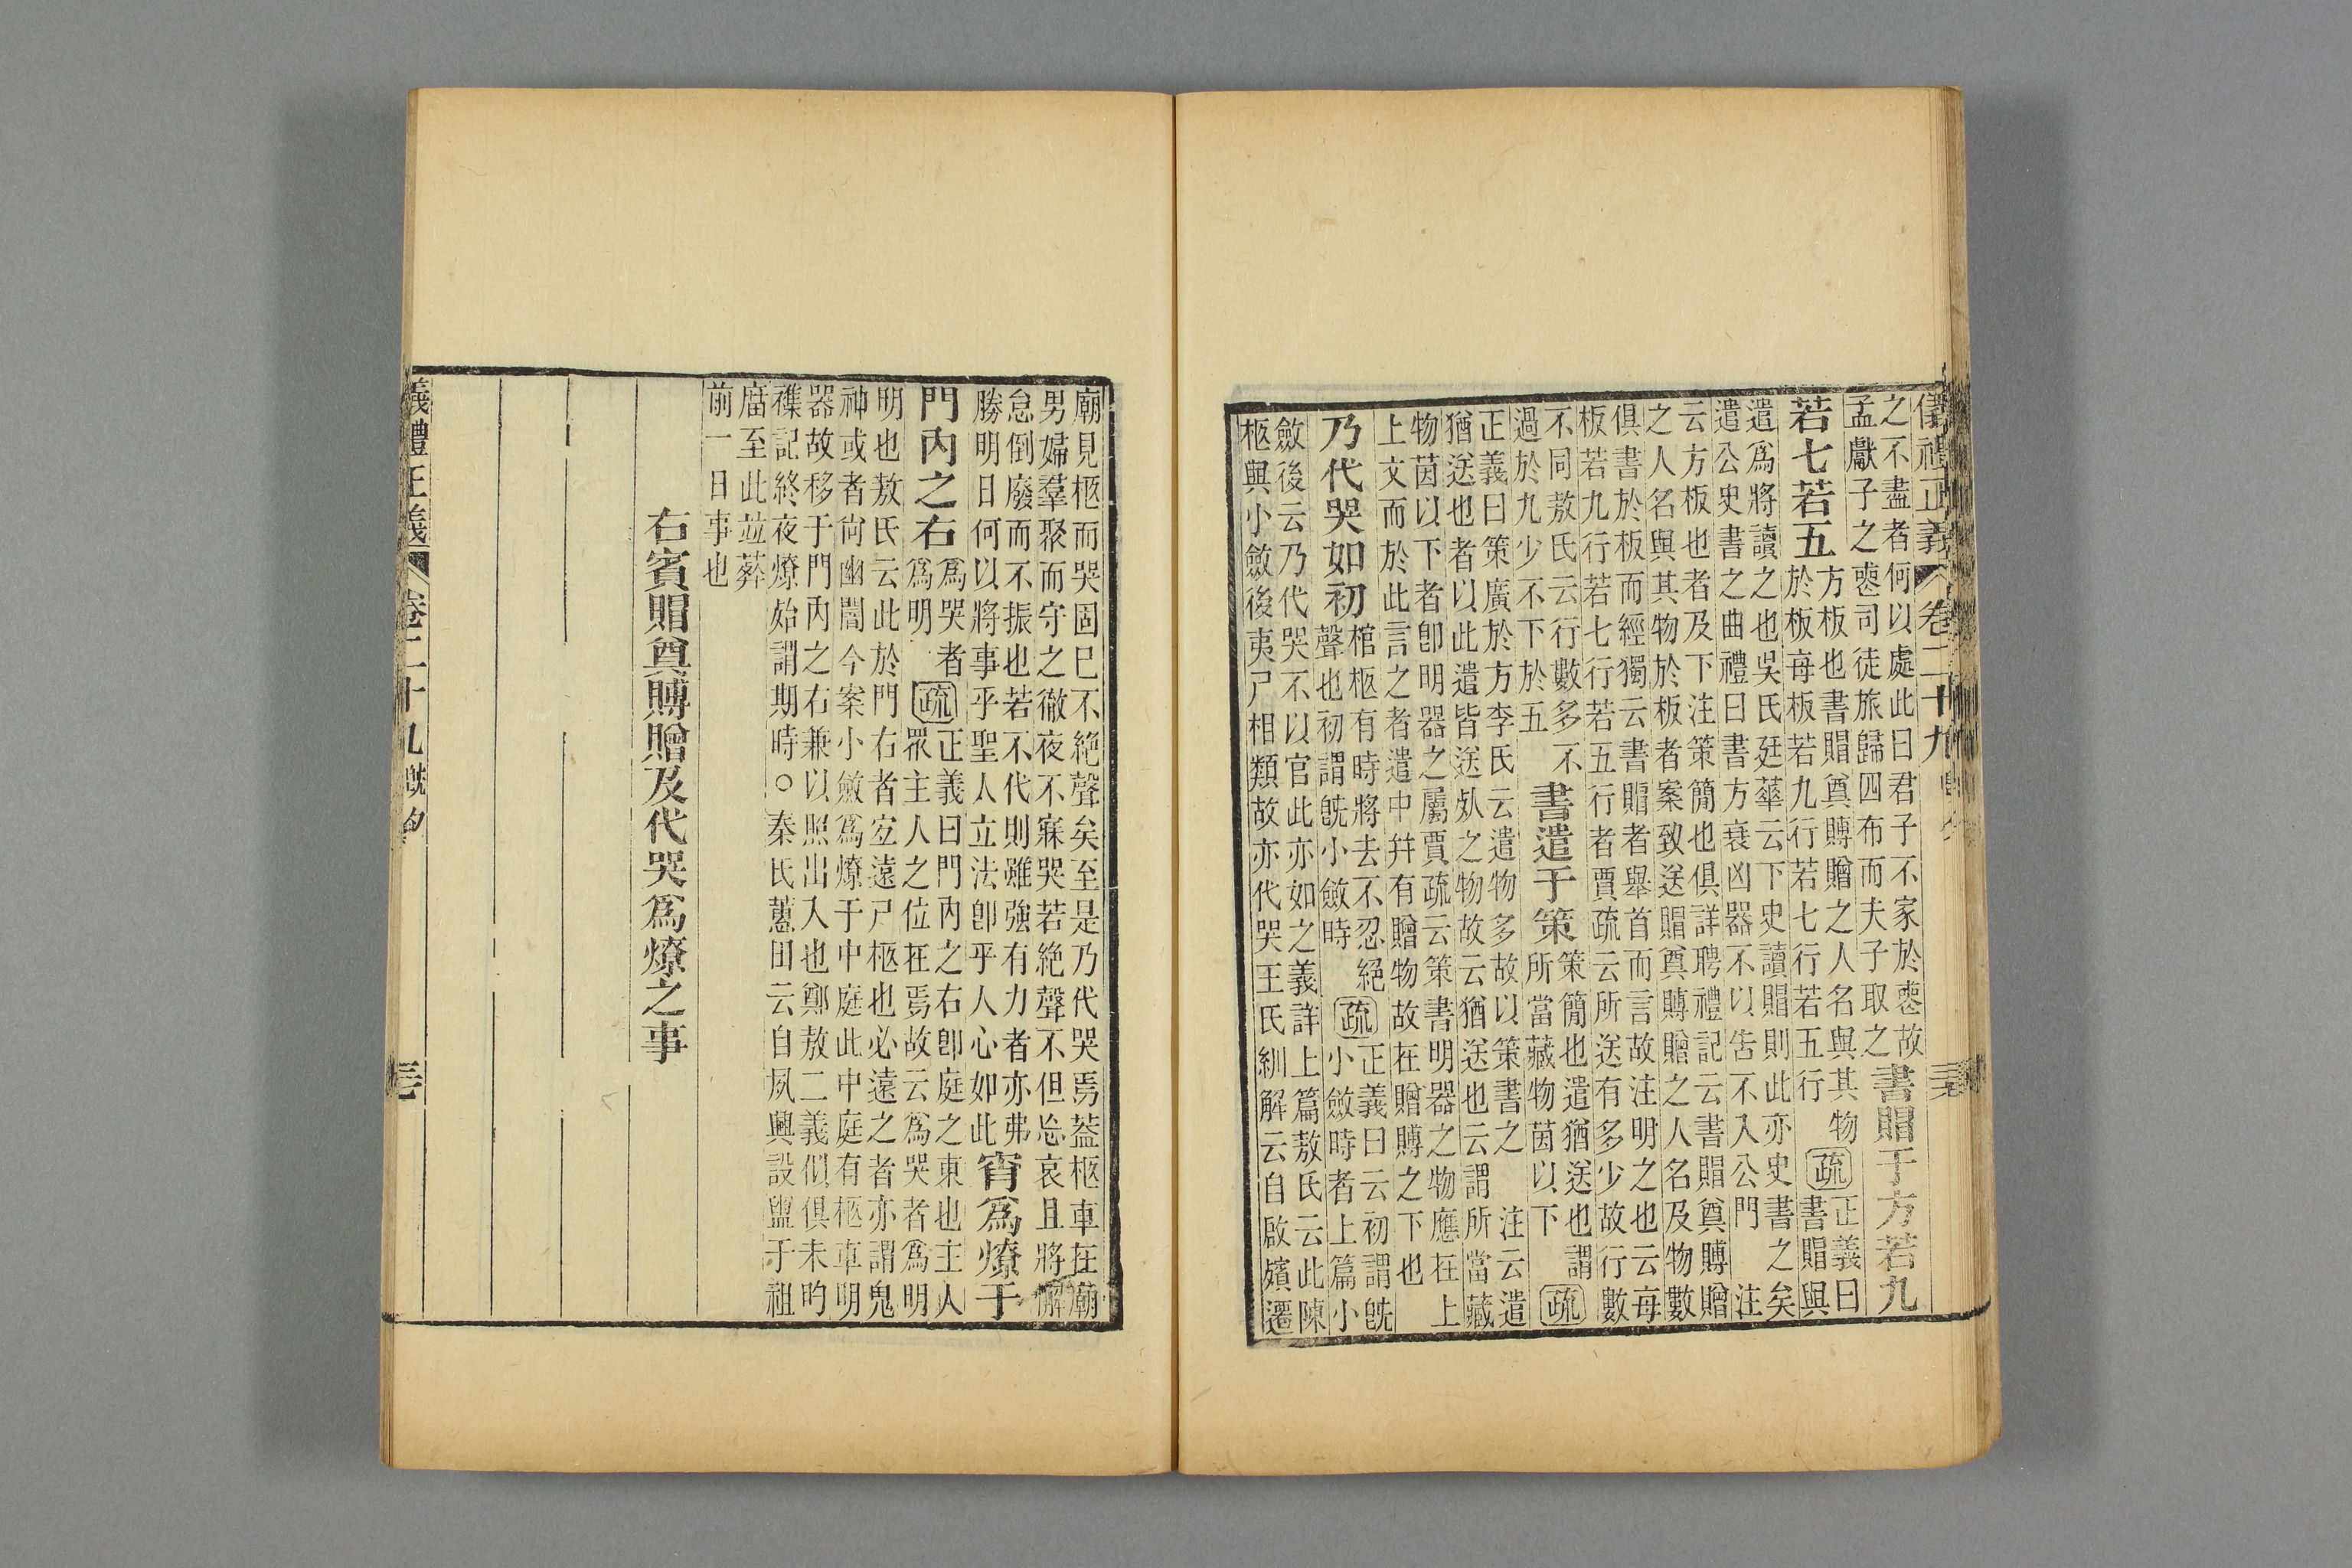 儀禮正義 卷二十九
之不盡者何以處此曰君子不家於喪故
孟獻子之喪司徒旅歸四布而夫子取之
書賵于方若九
若七若五
方板也書賵奠賻贈之人名與其物
於板每板若九行若七行若五行
疏
正義曰
書賵與
遣爲將讀之也吳氏廷華云下史讀賵則此亦史書之矣
遣公史書之曲禮曰書方衰凶器不以告不入公門 注
云方板也者及下注策簡也俱詳聘禮記云書賵奠賻贈
之人名與其物於板者案致送賵奠賻贈之人名及物數
俱書於板而經獨云書賵者舉首而言故注明之也云每
板若九行若七行若五行者賈疏云所送有多少故行數
不同敖氏云行數多不
過於九少不下於五
書遣于策
策簡也遣猶送也謂
所當藏物茵以下
疏
正義曰策廣於方李氏云遣物多故以策書之 注云遣
猶送也者以此遣皆送死之物故云猶送也云謂所當藏
物茵以下者卽明器之屬賈疏云策書明器之物應在上
上文而於此言之者遣中幷有贈物故在贈賻之下也
乃代哭如初
棺柩有時將去不忍絕
聲也初謂旣小斂時
疏
正義曰云初謂旣
小斂時者上篇小
斂後云乃代哭不以官此亦如之義詳上篇敖氏云此陳
柩與小斂後夷尸相類故亦代哭王氏紃解云自啟殯遷
廟見柩而哭固已不絕聲矣至是乃代哭焉葢柩車在廟
男婦羣聚而守之徹夜不寐哭若絕聲不但忘哀且將懈
怠倒廢而不振也若不代則雖強有力者亦弗
勝明日何以將事乎聖人立法卽乎人心如此
宵爲燎于
門內之右
爲哭者
爲明
疏
正義曰門內之右卽庭之東也主人
眾主人之位在焉故云爲哭者爲明
明也敖氏云此於門右者空遠尸柩也必遠之者亦謂鬼
神或者尙幽闇今案小斂爲燎于中庭此中庭有柩車明
器故移于門內之右兼以照出入也鄭敖二義似俱未昀
襍記終夜燎始謂期時○秦氏蕙田云自夙興設盥于祖
廟至此竝葬
前一日事也
右賓賵奠賻贈及代哭爲燎之事
儀禮正義 卷二十九旣夕